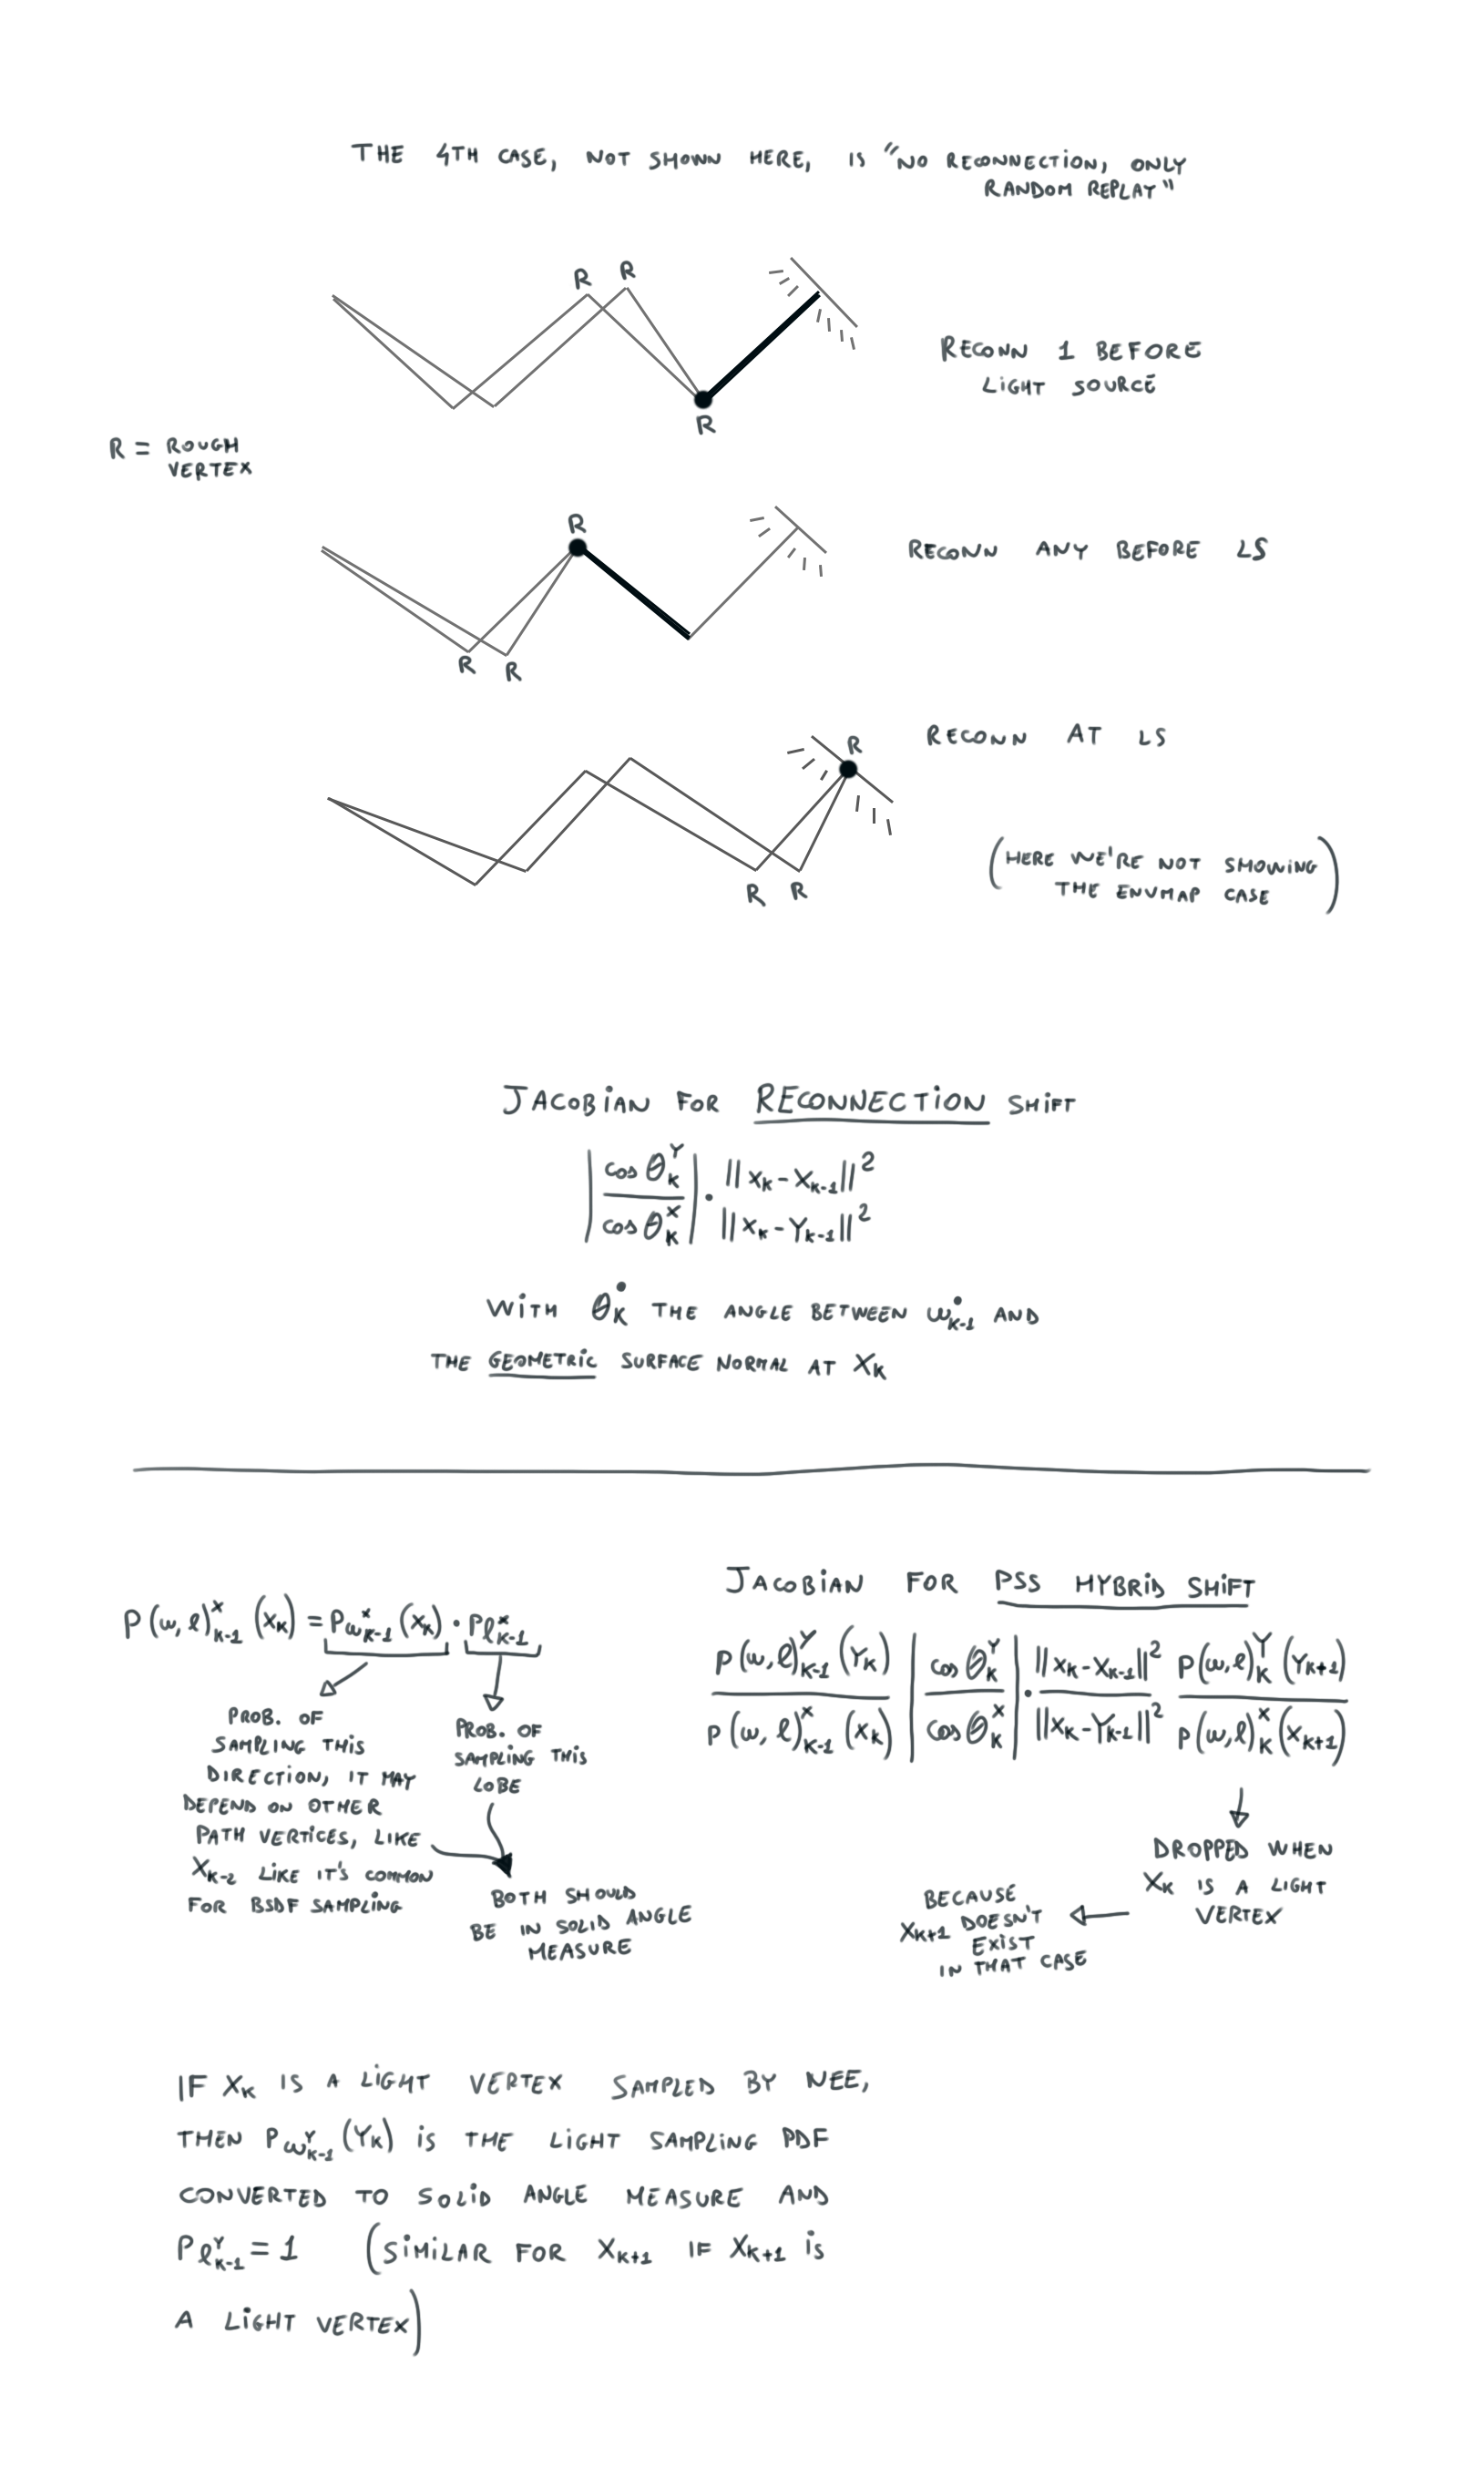 THE 4TH CASE, NOT SHOWN HERE, IS "NO RECONNECTION, ONLY
RANDOM REPLAY"
R R
R
RECONN 1 BEFORE
LIGHT SOURCE
R = ROUGH
VERTEX
R
R R
RECONN ANY BEFORE LS
R
R R
RECONN AT LS
(HERE WE'RE NOT SHOWING
THE ENVMAP CASE)
JACOBIAN FOR RECONNECTION SHIFT
|cos θ_K^Y / cos θ_K^X| · ||X_K - X_{K-1}||² / ||X_K - Y_{K-1}||²
WITH θ_K^• THE ANGLE BETWEEN ω_{K-1}^• AND
THE GEOMETRIC SURFACE NORMAL AT X_K
P(ω, ℓ)_{K-1}^X (X_K) = P_{ω_{K-1}^X}(X_K) · P_{ℓ_{K-1}^X}
PROB. OF
SAMPLING THIS
DIRECTION, IT MAY
DEPEND ON OTHER
PATH VERTICES, LIKE
X_{K-2} LIKE IT'S COMMON
FOR BSDF SAMPLING
PROB. OF
SAMPLING THIS
LOBE
BOTH SHOULD
BE IN SOLID ANGLE
MEASURE
JACOBIAN FOR PSS HYBRID SHIFT
P(ω, ℓ)_{K-1}^Y (Y_K) / P(ω, ℓ)_{K-1}^X (X_K) |cos θ_K^Y / cos θ_K^X| · ||X_K - X_{K-1}||² / ||X_K - Y_{K-1}||² P(ω, ℓ)_K^Y (Y_{K+1}) / P(ω, ℓ)_K^X (X_{K+1})
DROPPED WHEN
X_K IS A LIGHT
VERTEX
BECAUSE
X_{K+1} DOESN'T
EXIST
IN THAT CASE
IF X_K IS A LIGHT VERTEX SAMPLED BY NEE,
THEN P_{ω_{K-1}^Y}(Y_K) IS THE LIGHT SAMPLING PDF
CONVERTED TO SOLID ANGLE MEASURE AND
P_{ℓ_{K-1}^Y} = 1 (SIMILAR FOR X_{K+1} IF X_{K+1} IS
A LIGHT VERTEX)